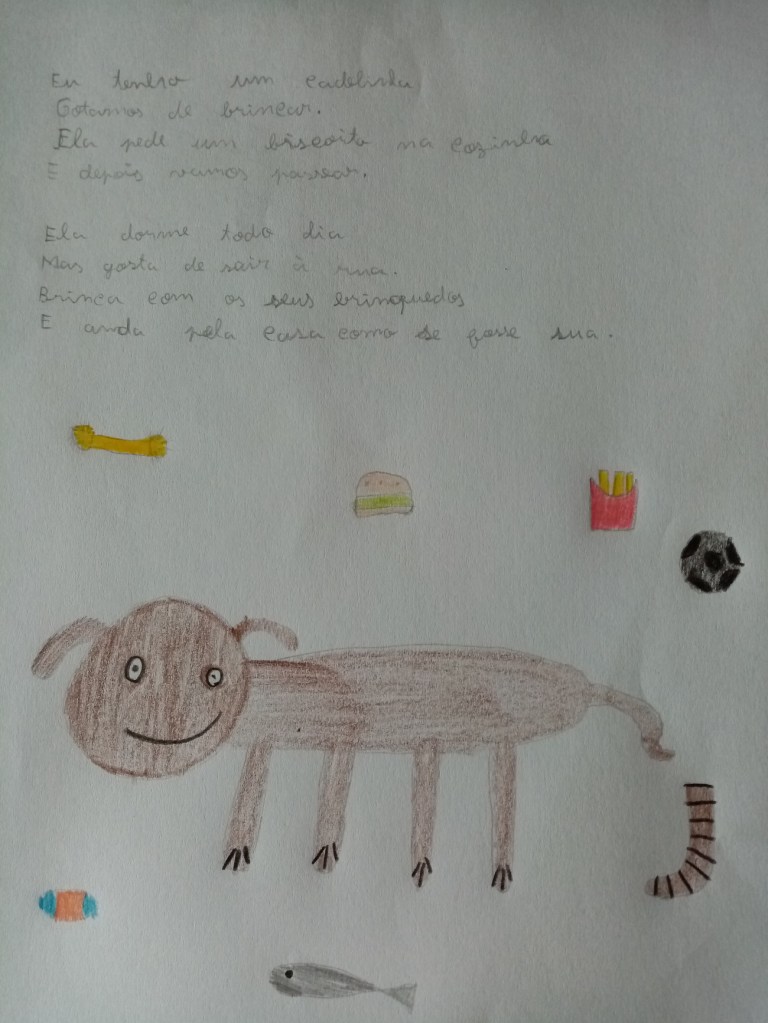 Eu tenho um cadelinha
Gotamos de brincar.
Ela pede um biscoito na cozinha
E depois vamos passear.
Ela dorme todo dia
Mas gosta de sair à rua.
Brinca com os seus brinquedos
E anda pela casa como se fosse sua.